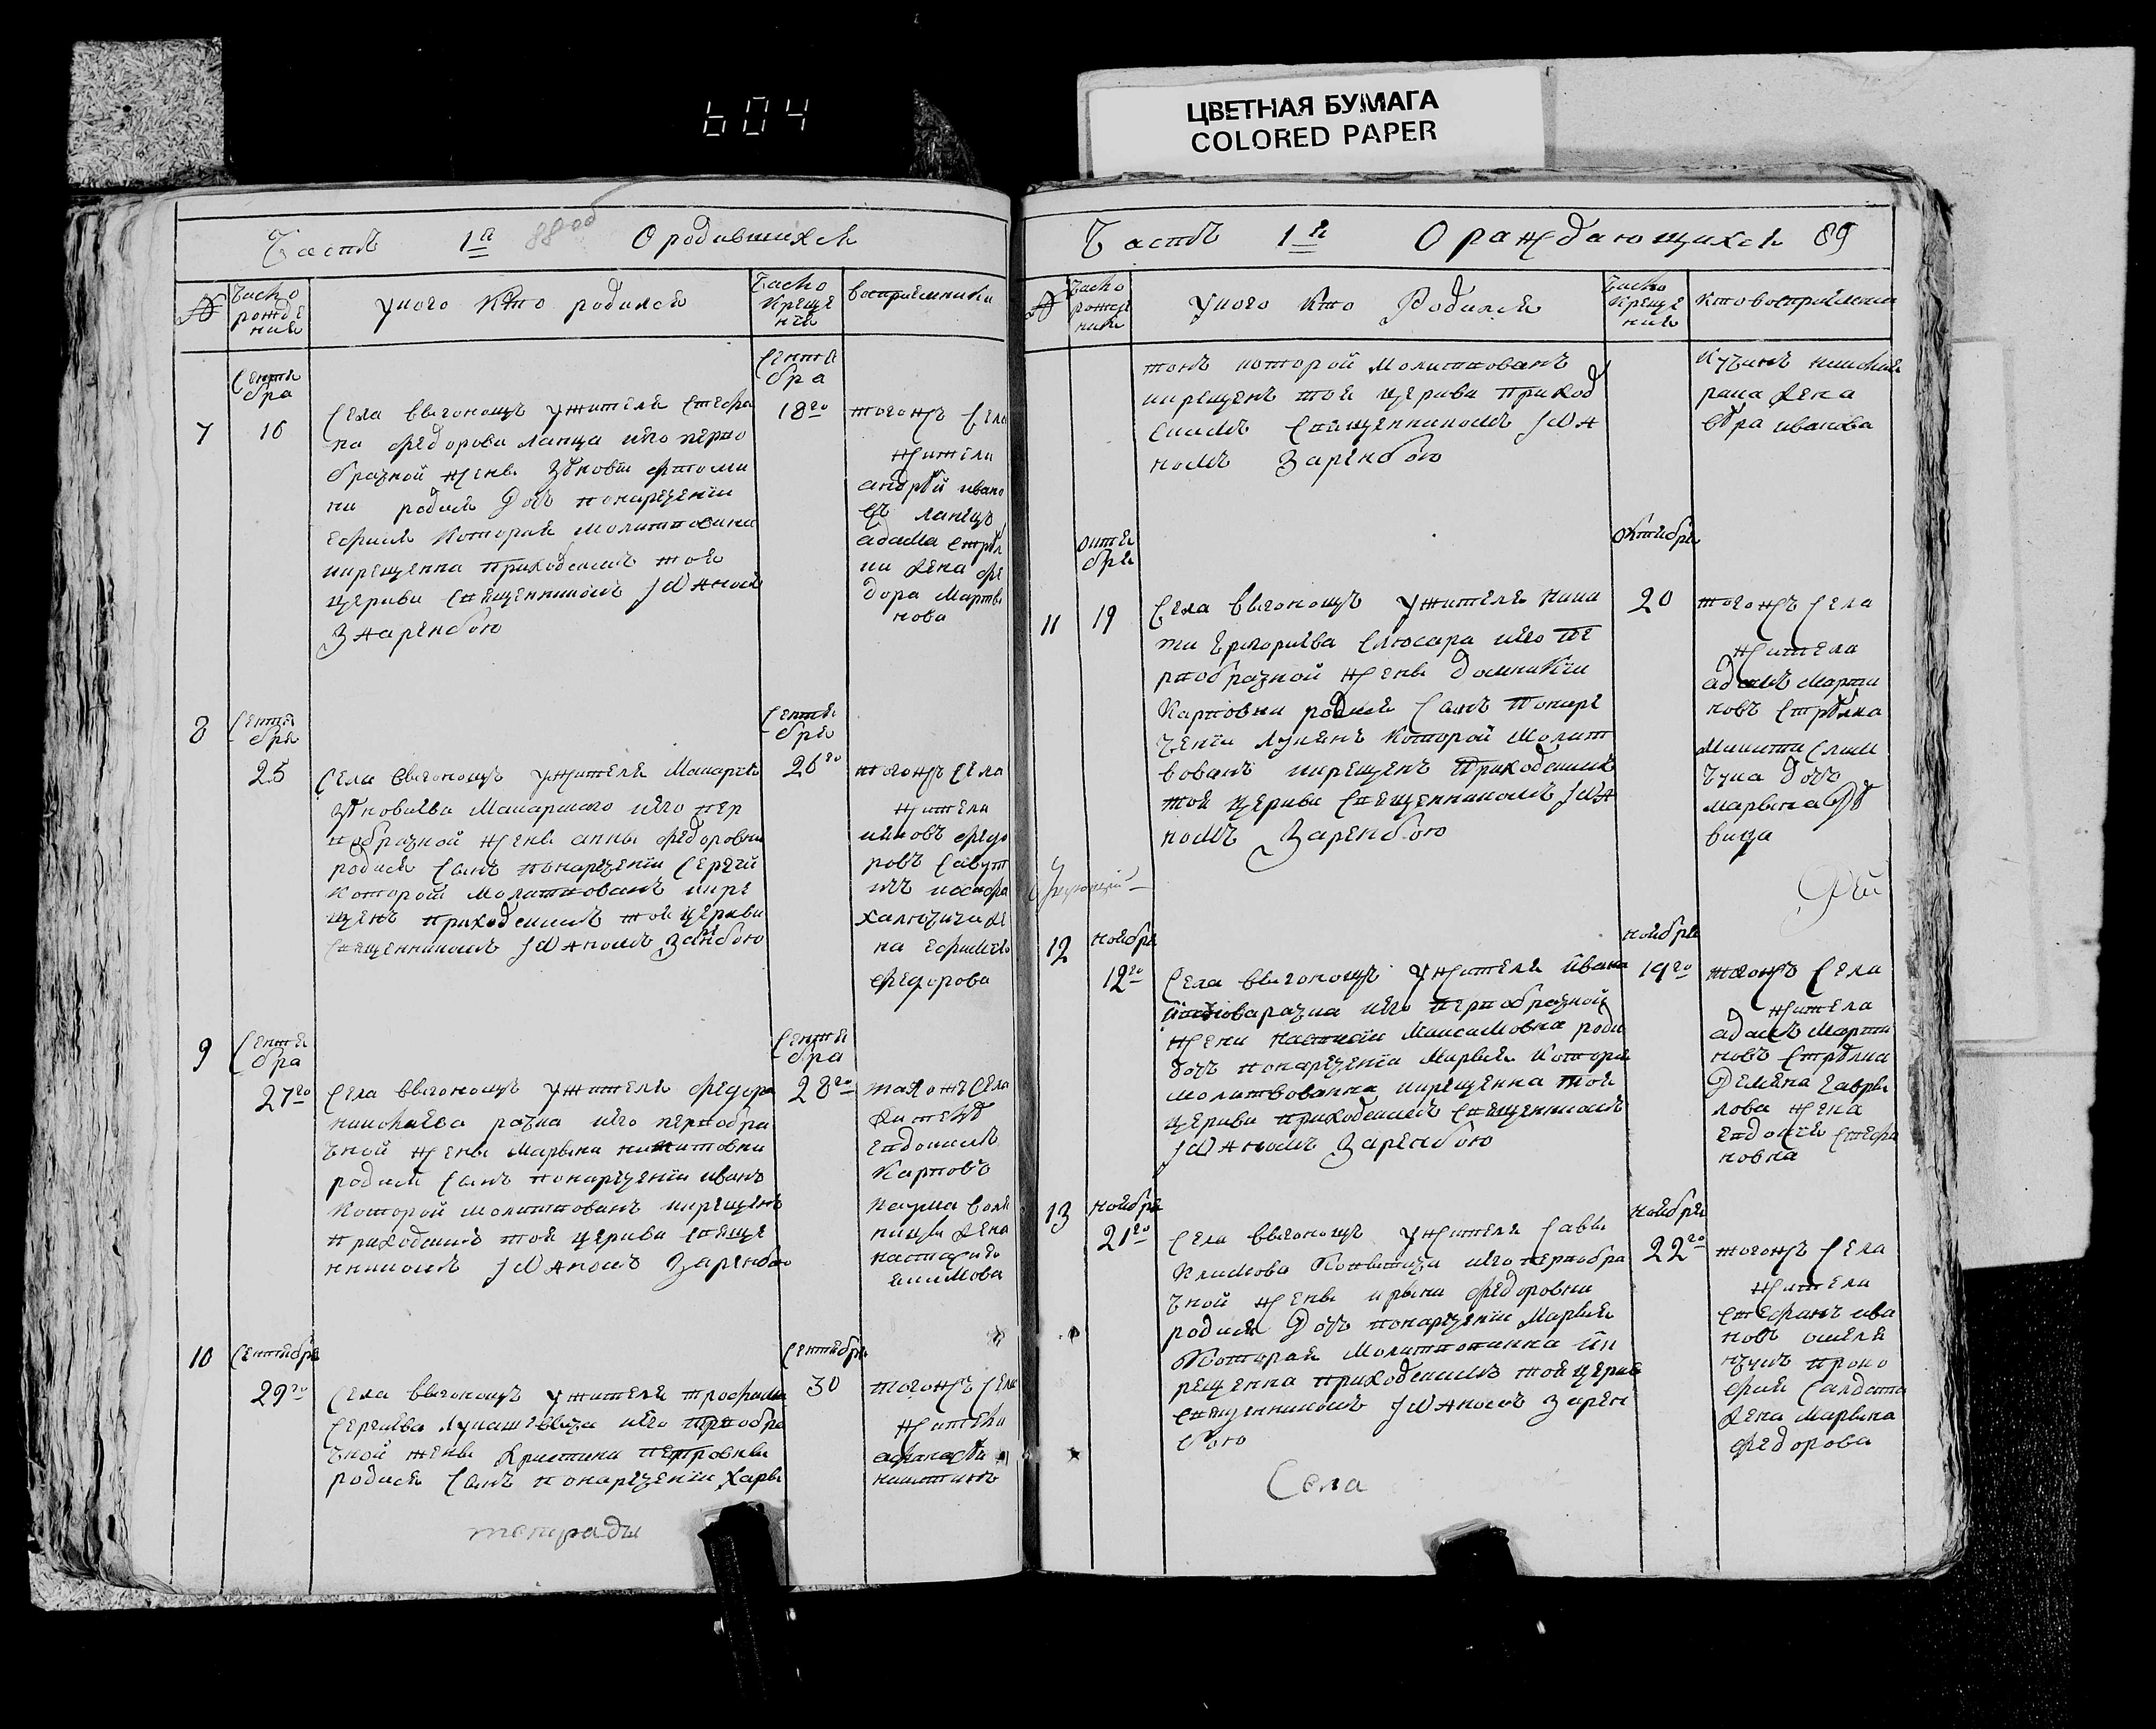 604
ЦВЕТНАЯ БУМАГА
COLORED PAPER
Часть 1я 88об О родившихся
№
Число рожде ния
У кого кто родился
Число креще нія
восприемники
Сентя
бра
7
16
Села Выгонощъ у жителя Стефа
на Федорова Ланца и его перво
бразной жены Зѣновіи
ни родися дочъ по нареченіи
которая молитвованна
и крещенна приходскимъ тоя
церкви священникомъ Іоанномъ
Зарембою
Сентя
бра
18го
тогожъ села
жители
андрѣй ивано
въ Ланецъ
адама
жена фе
дора Марты
нова
8
Сентя
бря
25
Села Выгонощъ у жителя Макарія
Зѣновиева Макарского и его пер
вобразной жены анны федоровны
родися сынъ по нареченіи Сергѣй
которой молитвованъ и кре
щенъ приходскимъ тоя церкви
священникомъ Іоанномъ Зарембою
Сентя
бря
26го
тогожъ села
жители
яковъ федо
ровъ
иосифа
же
на
федорова
9
Сентя
бра
27го
Села Выгонощъ у жителя федора
николаева разна и его первобра
зной жены Марыны никитовны
родися сынъ по нареченіи иванъ
которой молитвованъ и крещенъ
приходскимъ тоя церкви свяще
нникомъ Іоанномъ Зарембою
Сентя
бра
28го
тогожъ села
жители
евдокимъ
Карповъ
наума
жена
настасия
якимова
10
Сентября
29го
Села Выгонощъ у жителя трофима
Сергиева Лукашевича и его первобра
зной жены Христины петровны
родися сынъ по нареченіи Хари
Сентября
30
тогожъ села
жители
афанасѣи
никитинъ
тетради
Часть 1я О раждающихся 89
№
Число рожде ния
У кого кто Родился
Число креще ния
кто восприемники
тонъ которой молитвованъ
и крещенъ тоя церкви приход
скимъ священникомъ Іоан
номъ Зарембою
жена
ивановa
октя
бря
11
19
Села Выгонощъ у жителя Ники
ты Григориева Слюсара и его пе
рвобразной жены домникіи
Карповны родися сынъ по наре
ченіи Лукянъ которой молит
вованъ и крещенъ приходскимъ
тоя церкви священникомъ Іоан
номъ Зарембою
октября
20
тогожъ села
жители
адамъ марти
новъ стрѣлка
Микити
дочъ
марына дѣ
вица
12
ноября
12го
Села Выгонощъ у жителя ивана
разна и его первобразной
жени настасіи Максимовна роди
дочъ по нареченіи Марья которая
молитвованна и крещенна тоя
церкви приходскимъ священникомъ
Іоанномъ Зарембою
ноября
19го
тогожъ села
жители
адамъ марти
новъ стрѣлка
демяна гаври
лова жена
евдокія стефа
новна
13
ноября
21го
Села Выгонощъ у жителя Савы
Климова и его первобра
зной жены ирыны федоровни
родися дочъ по нареченіи Марья
которая молитвованна и к
рещенна приходскимъ тоя церкви
священникомъ Іоанномъ Зарем
бою
ноября
22го
тогожъ села
жители
стефанъ ива
новъ
проко
фия салдата
жена марына
федорова
Села